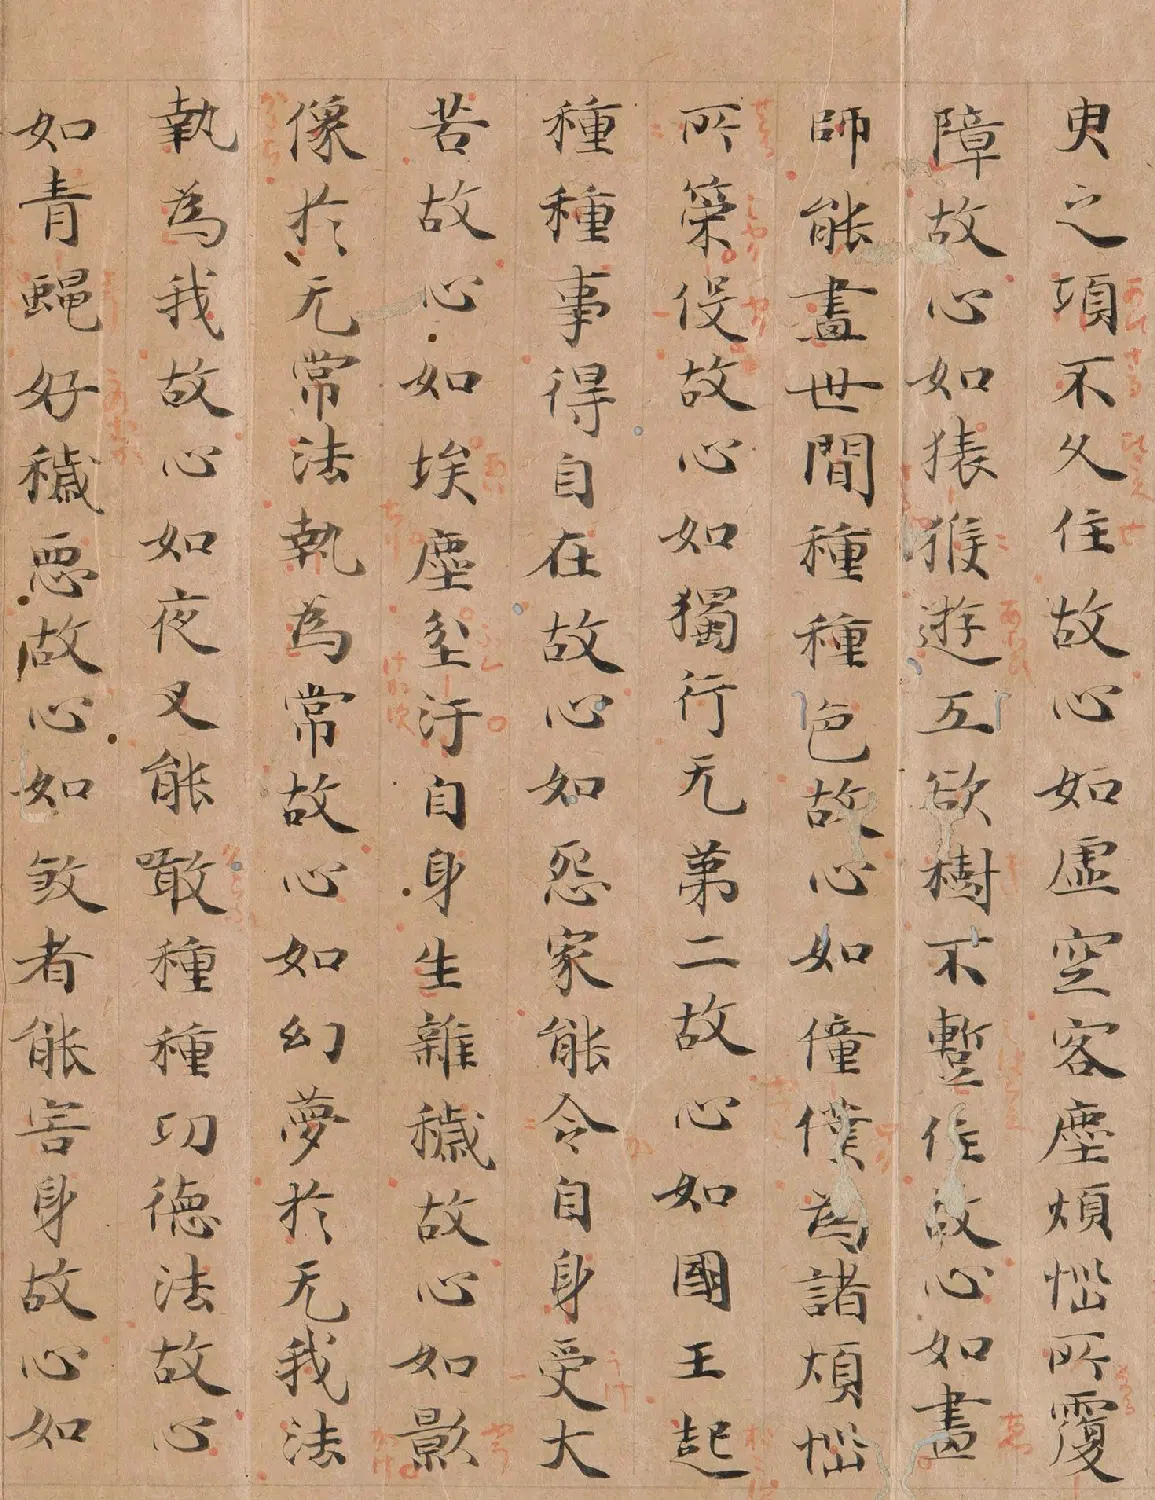 臾之頃不久住故心如虛空客塵煩惱所覆
障故心如猨猴遊五欲樹不暫住故心如畫
師能畫世間種種色故心如僮僕為諸煩惱
所策役故心如獨行无第二故心如國王起
種種事得自在故心如怨家能令自身受大
苦故心如埃塵坌汙自身生雜穢故心如影
像於无常法執為常故心如幻夢於无我法
執為我故心如夜叉能噉種種功德法故心
如青蠅好穢惡故心如敚者能害身故心如